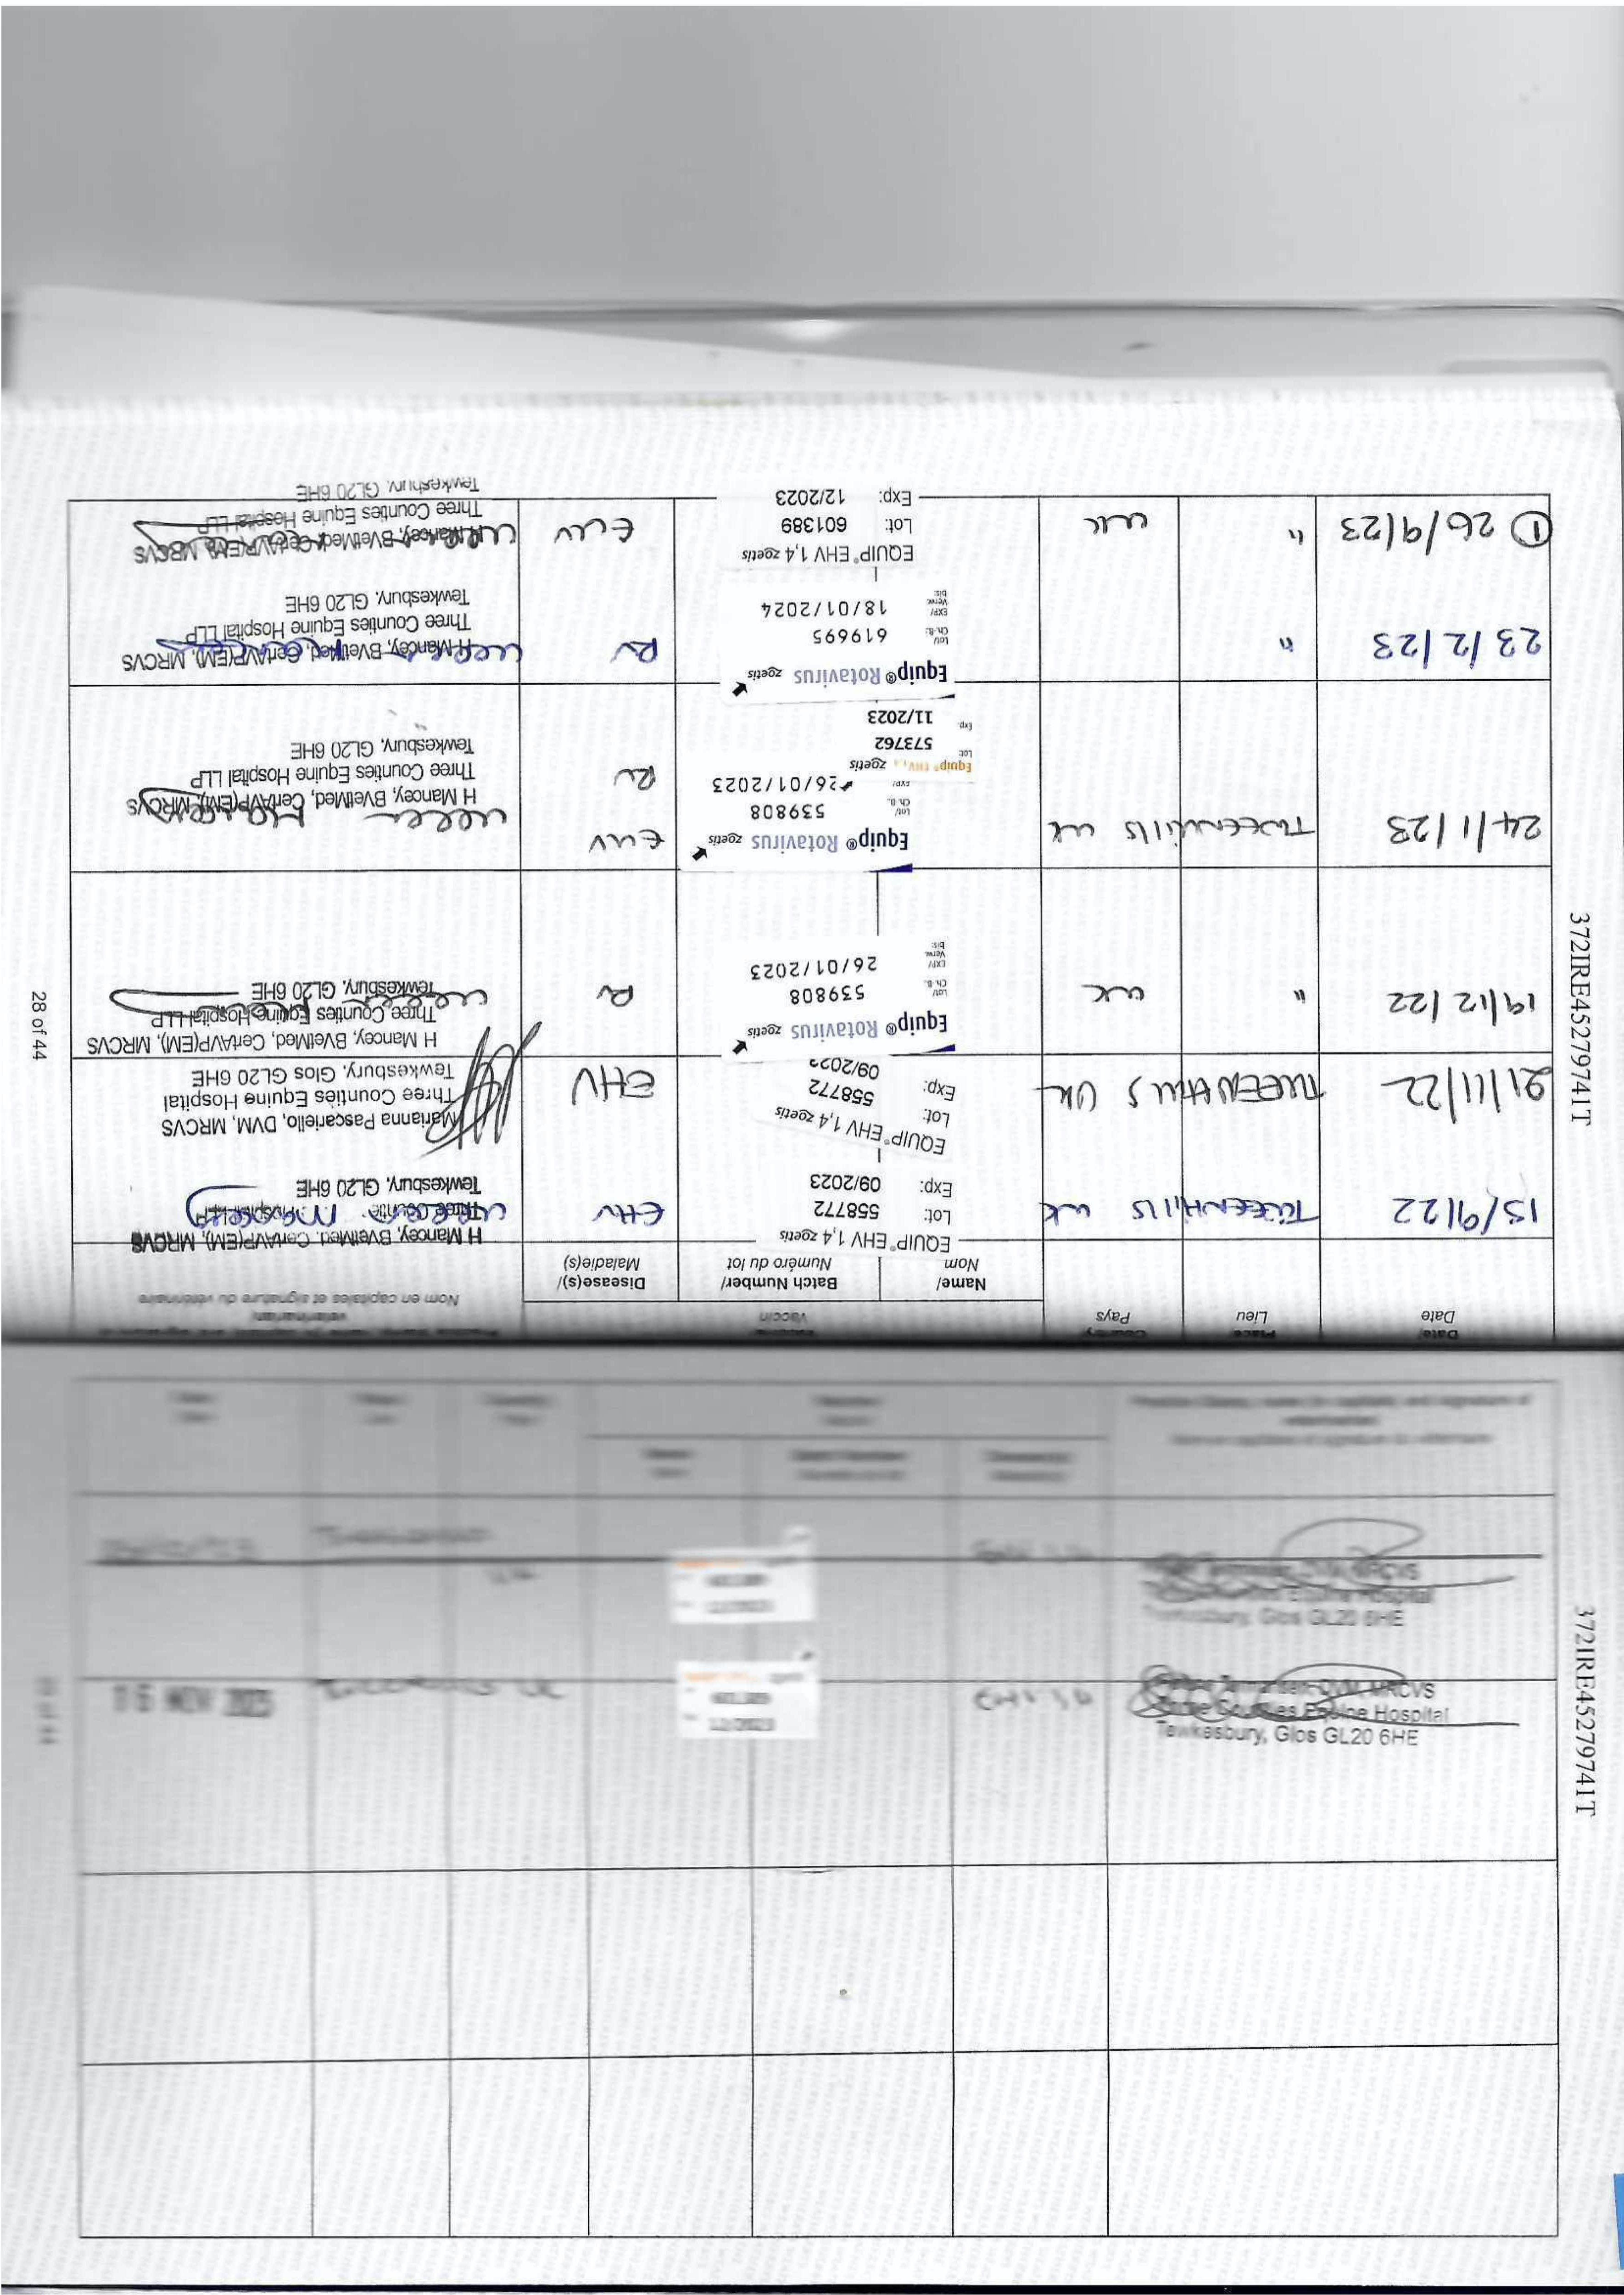 Date/
Date
Place
Lieu
Country
Pays
Vaccin
Name/
Nom
Batch Number/
Numéro du lot
Disease(s)/
Maladie(s)
veterinarian
Nom en capitales et signature du vétérinaire
15/9/22 TWEENHILLS UK
EQUIP® EHV 1,4 zoetis
Lot: 558772
Exp: 09/2023
EHV
H Mancey, BVetMed, CertAVP(EM), MRCVS
Tewkesbury, GL20 6HE
21/11/22 TWEENHILLS UK
EQUIP® EHV 1,4 zoetis
Lot: 558772
Exp: 09/2023
EHV
Marianna Pascariello, DVM, MRCVS
Three Counties Equine Hospital
Tewkesbury, Glos GL20 6HE
19/12/22 " UK
Equip® Rotavirus zoetis
Lot/ Ch.-B.: 539808
EXP/ Verw. bis: 26/01/2023
RV
H Mancey, BVetMed, CertAVP(EM), MRCVS
Three Counties Equine Hospital LLP
Tewkesbury, GL20 6HE
24/1/23 TWEENHILLS UK
Equip® Rotavirus zoetis
Lot/ Ch.-B. 539808
EXP/ 26/01/2023
Equip® EHV zoetis
Lot: 573762
Exp. 11/2023
EHV
RV
H Mancey, BVetMed, CertAVP(EM), MRCVS
Three Counties Equine Hospital LLP
Tewkesbury, GL20 6HE
23/2/23 "
Equip® Rotavirus zoetis
Lot/ Ch.-B.: 619695
EXP/ Verw. bis: 18/01/2024
RV
H Mancey, BVetMed, CertAVP(EM), MRCVS
Three Counties Equine Hospital LLP
Tewkesbury, GL20 6HE
① 26/9/23 " UK
EQUIP® EHV 1,4 zoetis
Lot: 601389
Exp: 12/2023
EHV
H Mancey, BVetMed, CertAVP(EM), MRCVS
Three Counties Equine Hospital LLP
Tewkesbury, GL20 6HE
28 of 44
372IRE45279741T
UK
MRCVS
Equine Hospital
Tewkesbury, Glos GL20 6HE
16 NOV 2023
UK
12/2023
DVM, MRCVS
Three Counties Equine Hospital
Tewkesbury, Glos GL20 6HE
372IRE45279741T